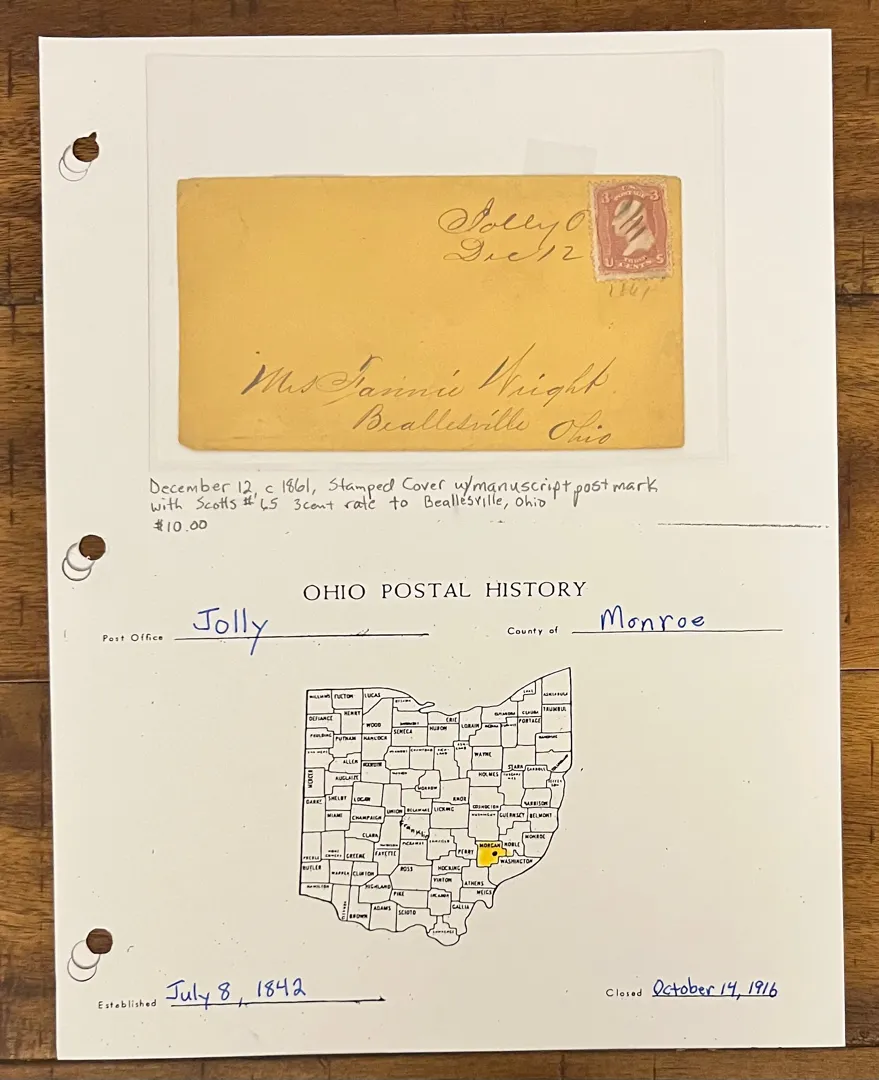 Jolly O
Dec 12
3 U.S. POSTAGE 3
U THREE CENTS S
1861
Mrs Fannie Wright
Beallesville
Ohio
December 12, c 1861, Stamped Cover w/manuscript postmark
with Scotts #65 3cent rate to Beallesville, Ohio
$10.00
OHIO POSTAL HISTORY
Post Office Jolly County of Monroe
WILLIAMS FULTON LUCAS
LAKE ASHTABULA
DEFIANCE HENRY WOOD OTTAWA
ERIE LORAIN CUYAHOGA GEAUGA TRUMBUL
PAULDING PUTNAM HANCOCK SENECA HURON MEDINA SUMMIT PORTAGE
MAHONING
ALLEN WYANDOT CRAWFORD WAYNE
MERCER AUGLAIZE HARDIN MARION HOLMES STARK CARROLL
MORROW
DARKE SHELBY LOGAN UNION DELAWARE KNOX LICKING COSHOCTON HARRISON
MIAMI CHAMPAIGN Franklin MUSKINGUM GUERNSEY BELMONT
CLARK MONROE
PREBLE GREENE FAYETTE PERRY MORGAN NOBLE
WASHINGTON
BUTLER WARREN CLINTON ROSS HOCKING
HAMILTON HIGHLAND PIKE VINTON ATHENS
MEIGS
BROWN ADAMS SCIOTO GALLIA
Established July 8, 1842 Closed October 14, 1916